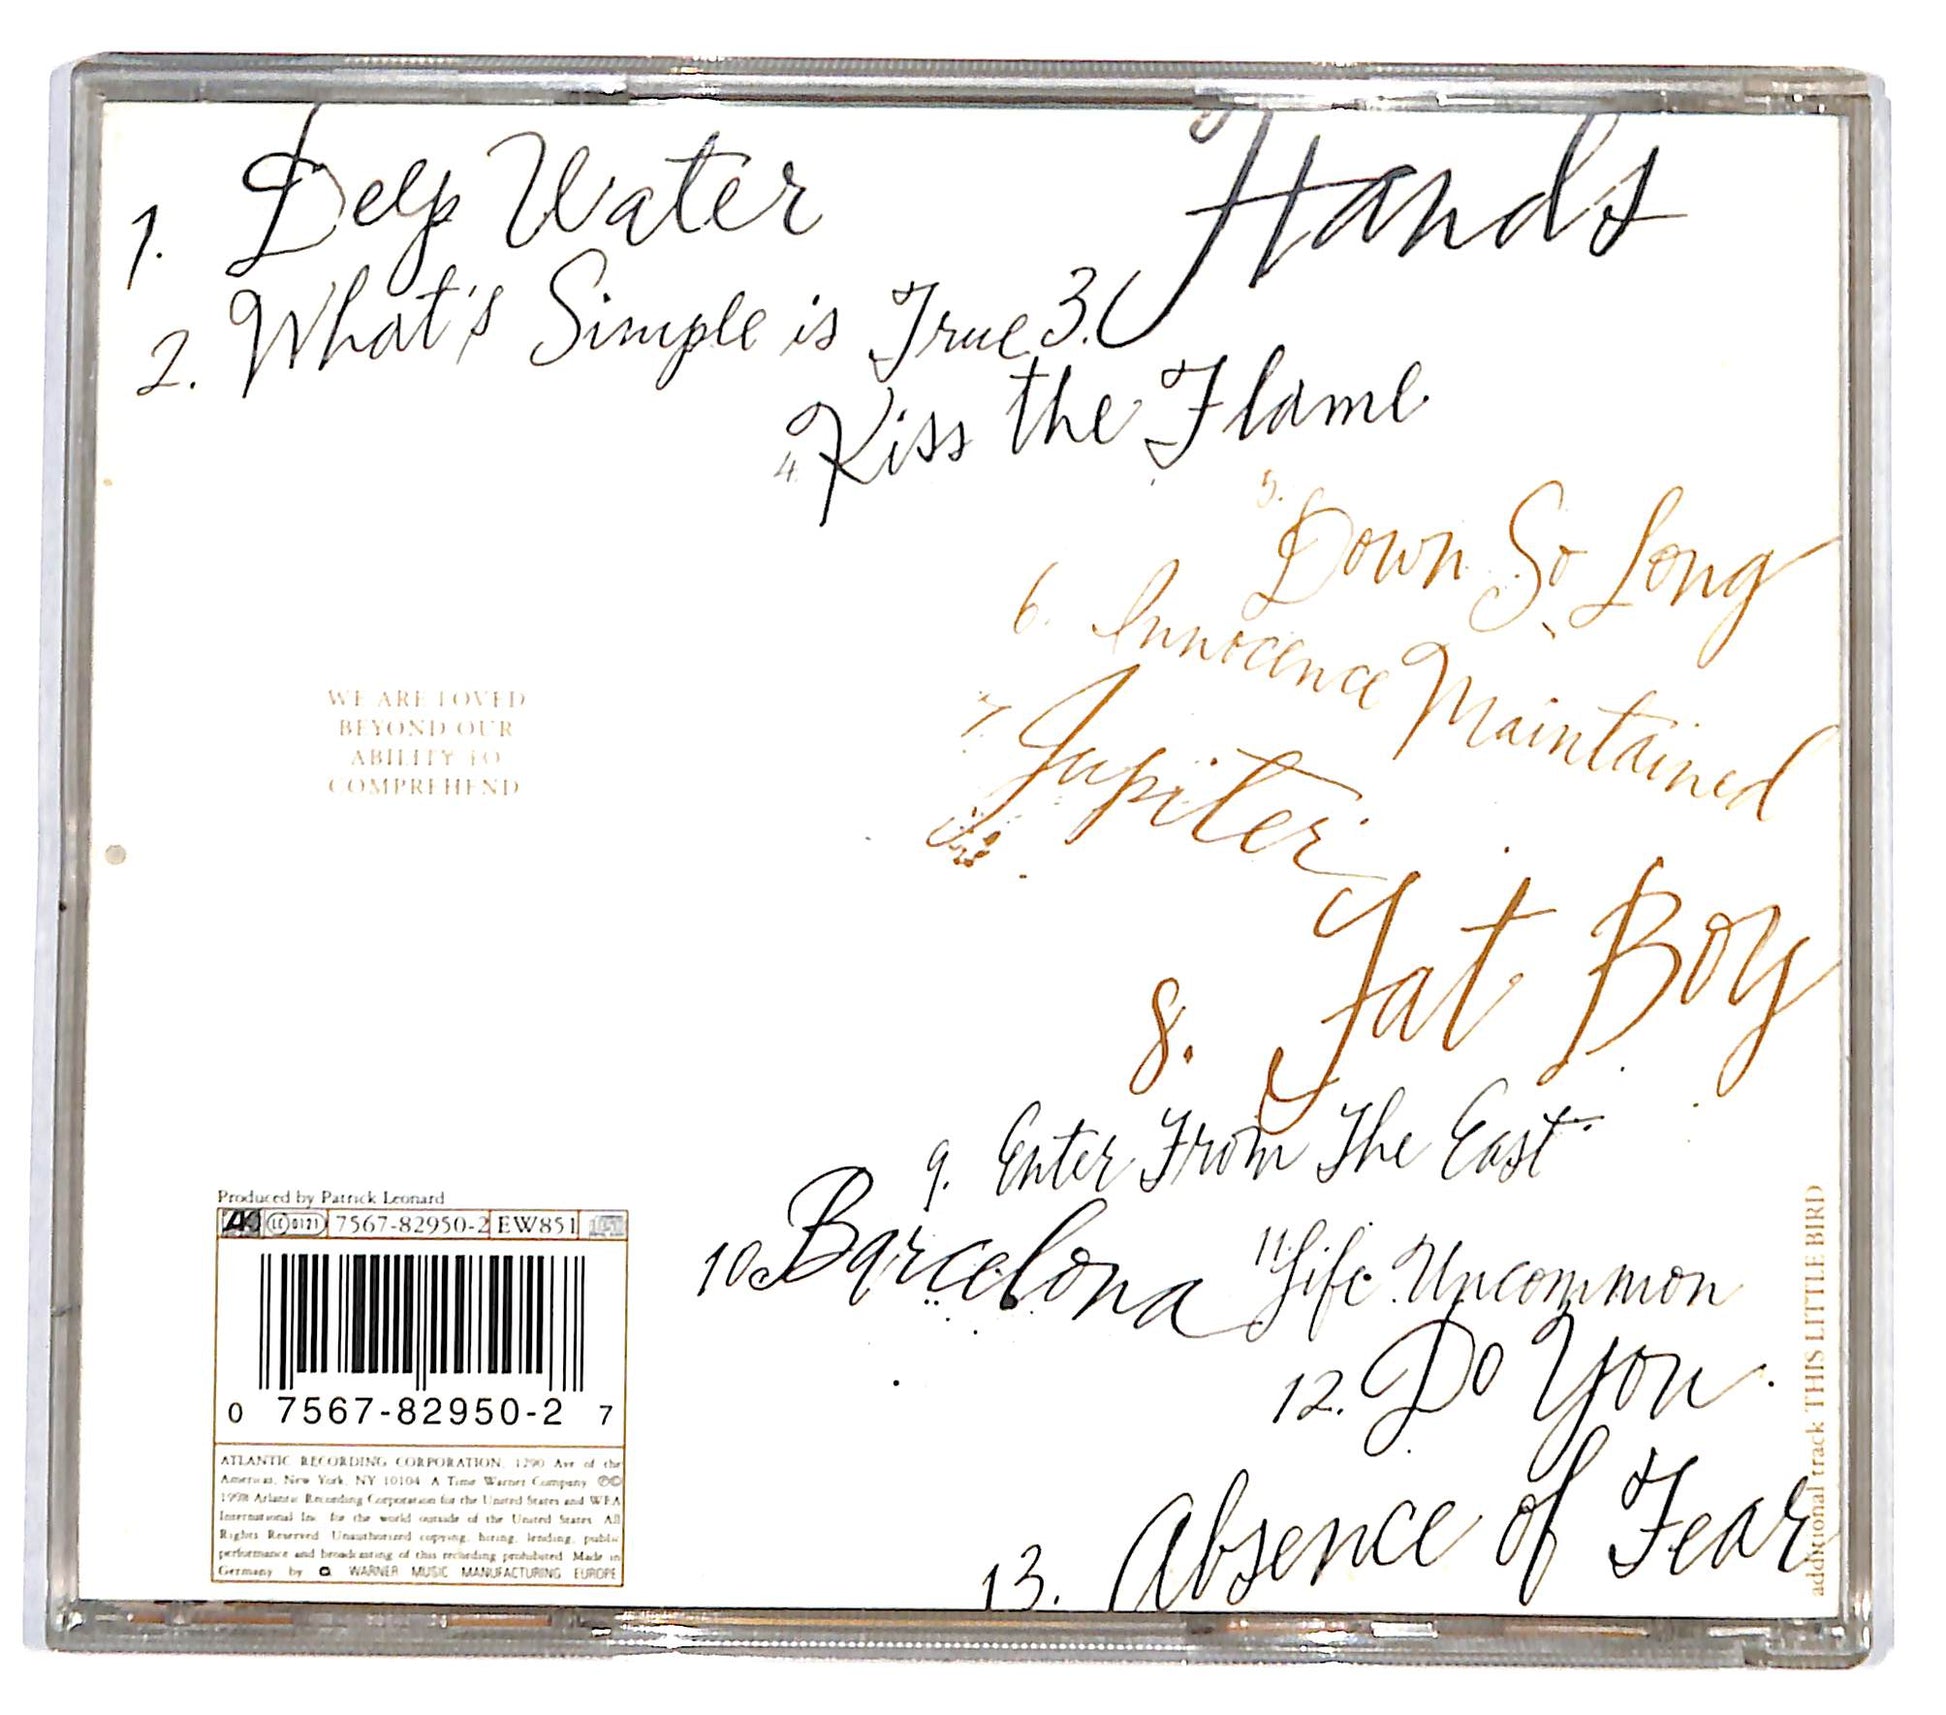 1. Deep Water
2. What's Simple is True
3. Hands
4. Kiss the Flame
5. Down So Long
6. Innocence Maintained
7. Jupiter
8. Fat Boy
9. Enter From The East
10. Barcelona
11. Life Uncommon
12. Do You
13. Absence of Fear
additional track THIS LITTLE BIRD
WE ARE LOVED
BEYOND OUR
ABILITY TO
COMPREHEND
Produced by Patrick Leonard
LC 0121 7567-82950-2 EW851
0 7567-82950-2 7
ATLANTIC RECORDING CORPORATION, 1290 Ave of the
Americas, New York, NY 10104 A Time Warner Company ℗©
1998 Atlantic Recording Corporation for the United States and WEA
International Inc. for the world outside of the United States. All
Rights Reserved. Unauthorized copying, hiring, lending, public
performance and broadcasting of this recording prohibited. Made in
Germany by WARNER MUSIC MANUFACTURING EUROPE